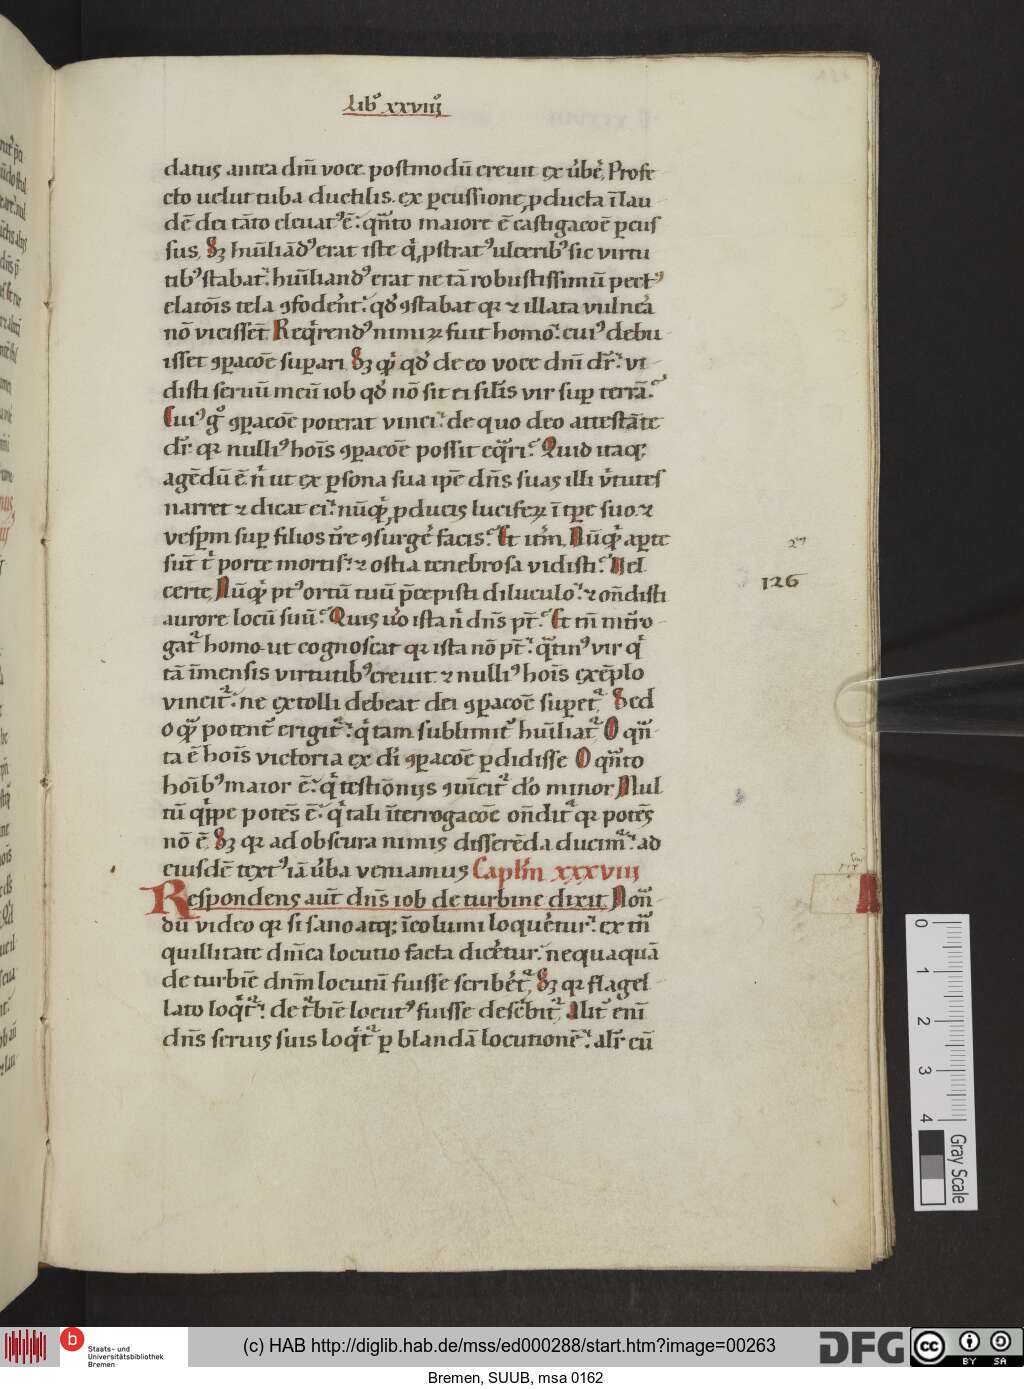 Lib⁹ xxviiij
datus antea dn̄i voce. postmodū creuit ex v̓be̓. Profe
cto uelut tuba ductilis. ex ꝑcussione ꝓducta ī lau
dē dei tāto eleuat⁹ ē: qn̄to maiore ē castigacōe ꝑcus
sus. Sꝫ hūiliād⁹ erat iste qͥ ꝓstrat⁹ ulcerib⁹ sic virtu
tib⁹ stabat. hūiliand⁹ erat ne tā robustissimū pect⁹
elatōis tela ꝯfoderēt. qd̓ ꝯstabat qꝛ ⁊ illata vulnera
nō vicissēt. Requ̓rend⁹ nimiꝝ fuit homo: cui⁹ debu
isset ꝯꝑacōe suꝑari. Sꝫ qͥ qd̓ de eo voce dn̄i dr̄: vi
disti seruū meū iob qd̓ nō sit ei silīs vir suꝑ terrā.
Cui⁹ gͦ ꝯꝑacōe poterat vinci: de quo deo attestāte
dr̄ qꝛ nulli⁹ hoīs ꝯꝑacōe possit eqͣri. Quid itaqꝫ
agēdū ē nͥ ut ex ꝑsona sua ip̄e dn̄s suas illi v̓tutes
narret ⁊ dicat ei: nūqͥ ꝓducis lucifeꝝ ī tꝑe suo. ⁊
vesꝑm suꝑ filios t̄re ꝯsurge̓ facis. Et itm̄. Nūqͥ aꝑte
sūt tͥ porte mortis: ⁊ ostia tenebrosa vidisti. Vel
certe. Nūqͥ pt⁹ ortū tuū p̄cepisti diluculo: ⁊ on̄disti
aurore locū suū. Quis v̓o ista nͥ dn̄s pt̄. Et tn̄ int̄ro-
gatͬ homo ut cognoscat qꝛ ista nō pt̄: qͣtin⁹ vir qͥ
tā īmensis virtutib⁹ creuit ⁊ nulli⁹ hoīs exēplo
vincitͬ. ne extolli debeat dei ꝯꝑacōe suꝑetͬ. Sed
O qͣ potentͬ erigitͬ: qͥ tam sublimitͬ hūiliatͬ O qn̄-
ta ē hoīs victoria ex di̓ ꝯꝑacōe ꝑdidisse O qn̄to
hoīb⁹ maior ē: qͥ testiōnijs ꝯuīcitͬ d̓o minor. Mul
tū qͥppe potēs ē: qͥ tali īterrogacōe on̄ditͬ qꝛ potēs
nō ē. Sꝫ qꝛ ad obscura nimis disserēda ducimͬ: ad
eiusdē text⁹ iā v̓ba veniamus Caplm̄ xxxviii
Respondens aut̄ dn̄s iob de turbine dixit. Non-
dū video qꝛ si sano atqꝫ īcolumi loque̓tur: ex tn̄-
quillitate dn̄ica locutio facta dice̓tur. nequaquā
de turbīe dnm̄ locutū fuisse scribe̓tͬ. Sꝫ qꝛ flagel
lato loqͥtͬ: de t̓bīe locut⁹ fuisse desc̓bitͬ. Alitͬ enī
dn̄s seruis suis loqͥtͬ ꝑ blandā locutionē: alr̄ cū
126
0 1 2 3 4 Gray Scale
b Staats- und
Universitätsbibliothek
Bremen
(c) HAB http://diglib.hab.de/mss/ed000288/start.htm?image=00263
DFG
cc BY SA
Bremen, SUUB, msa 0162